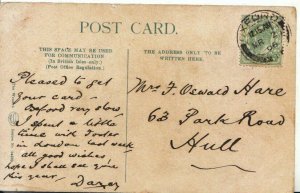 POST CARD.
THIS SPACE MAY BE USED
FOR COMMUNICATION
(In British Isles only)
(Post Office Regulation.)
THE ADDRESS ONLY TO BE
WRITTEN HERE.
Pleased to get
your card.
Oxford very slow
I spent a little
time with Foster
in London last week
all good wishes,
hope I shall see you
this year.
Mr F Oswald Hare
63 Park Road
Hull